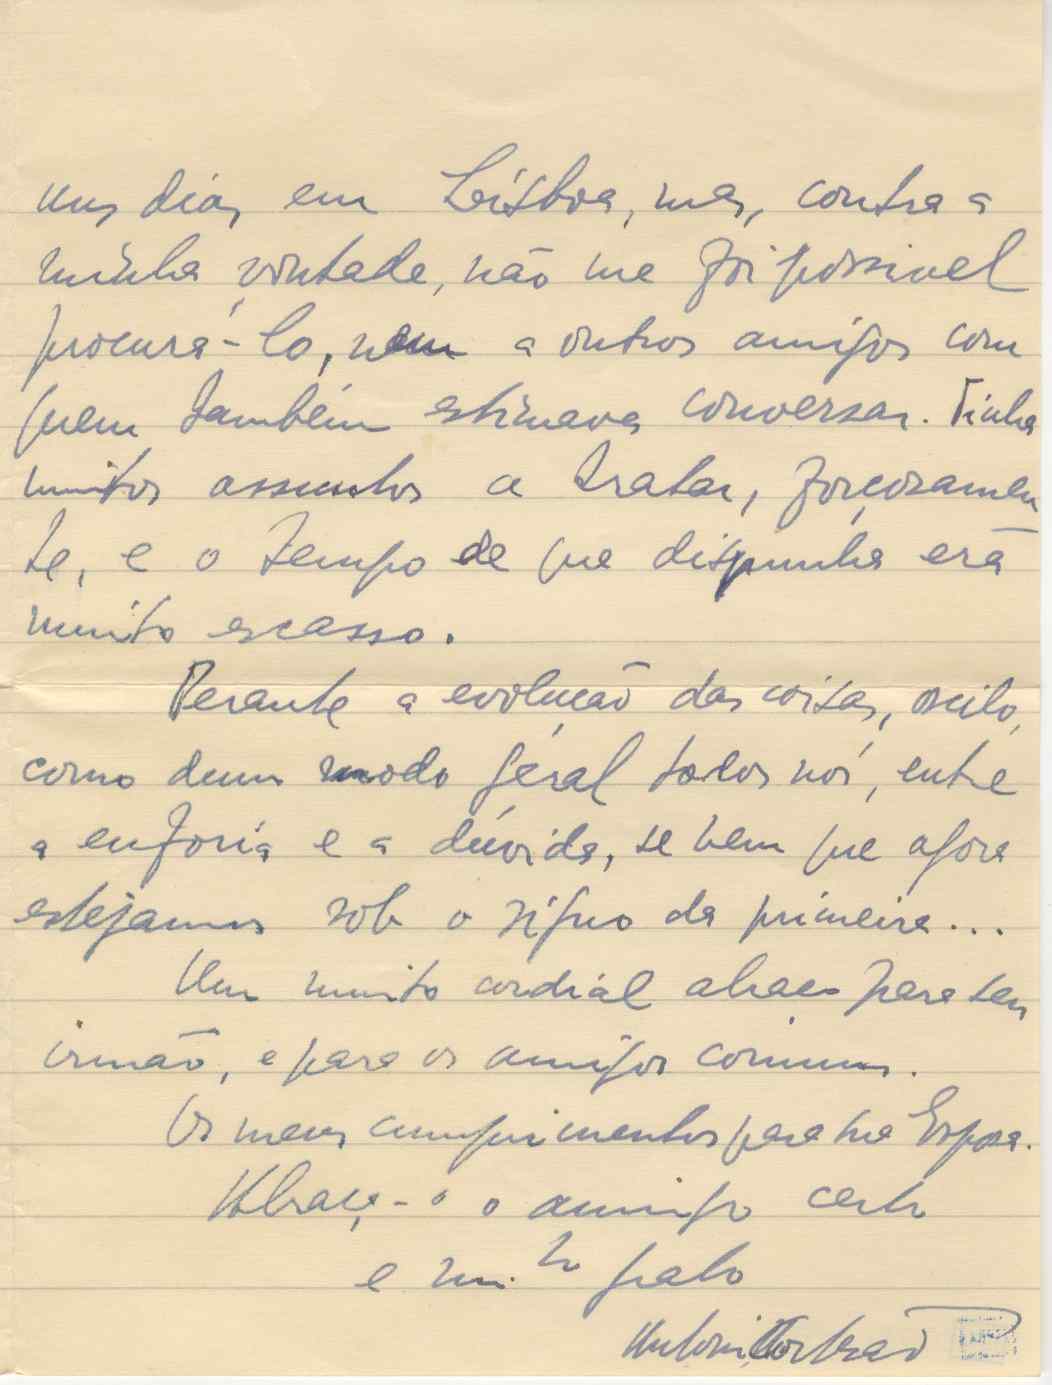 uns dias em Lisboa, mas, contra a
minha vontade, não me foi possivel
procurá-lo, nem a outros amigos com
quem também estimava conversar. Tinha
muitos assuntos a tratar, forçosamen
te, e o tempo de que dispunha era
muito escasso.
Perante a evolução das coisas, oscilo,
como dum modo geral todos nós, entre
a euforia e a dúvida, se bem que agora
estejamos sob o signo da primeira...
Um muito cordial abraço para seu
irmão, e para os amigos comuns.
Os meus cumprimentos para sua Esposa.
Abraça-o o amigo certo
e mui.to grato